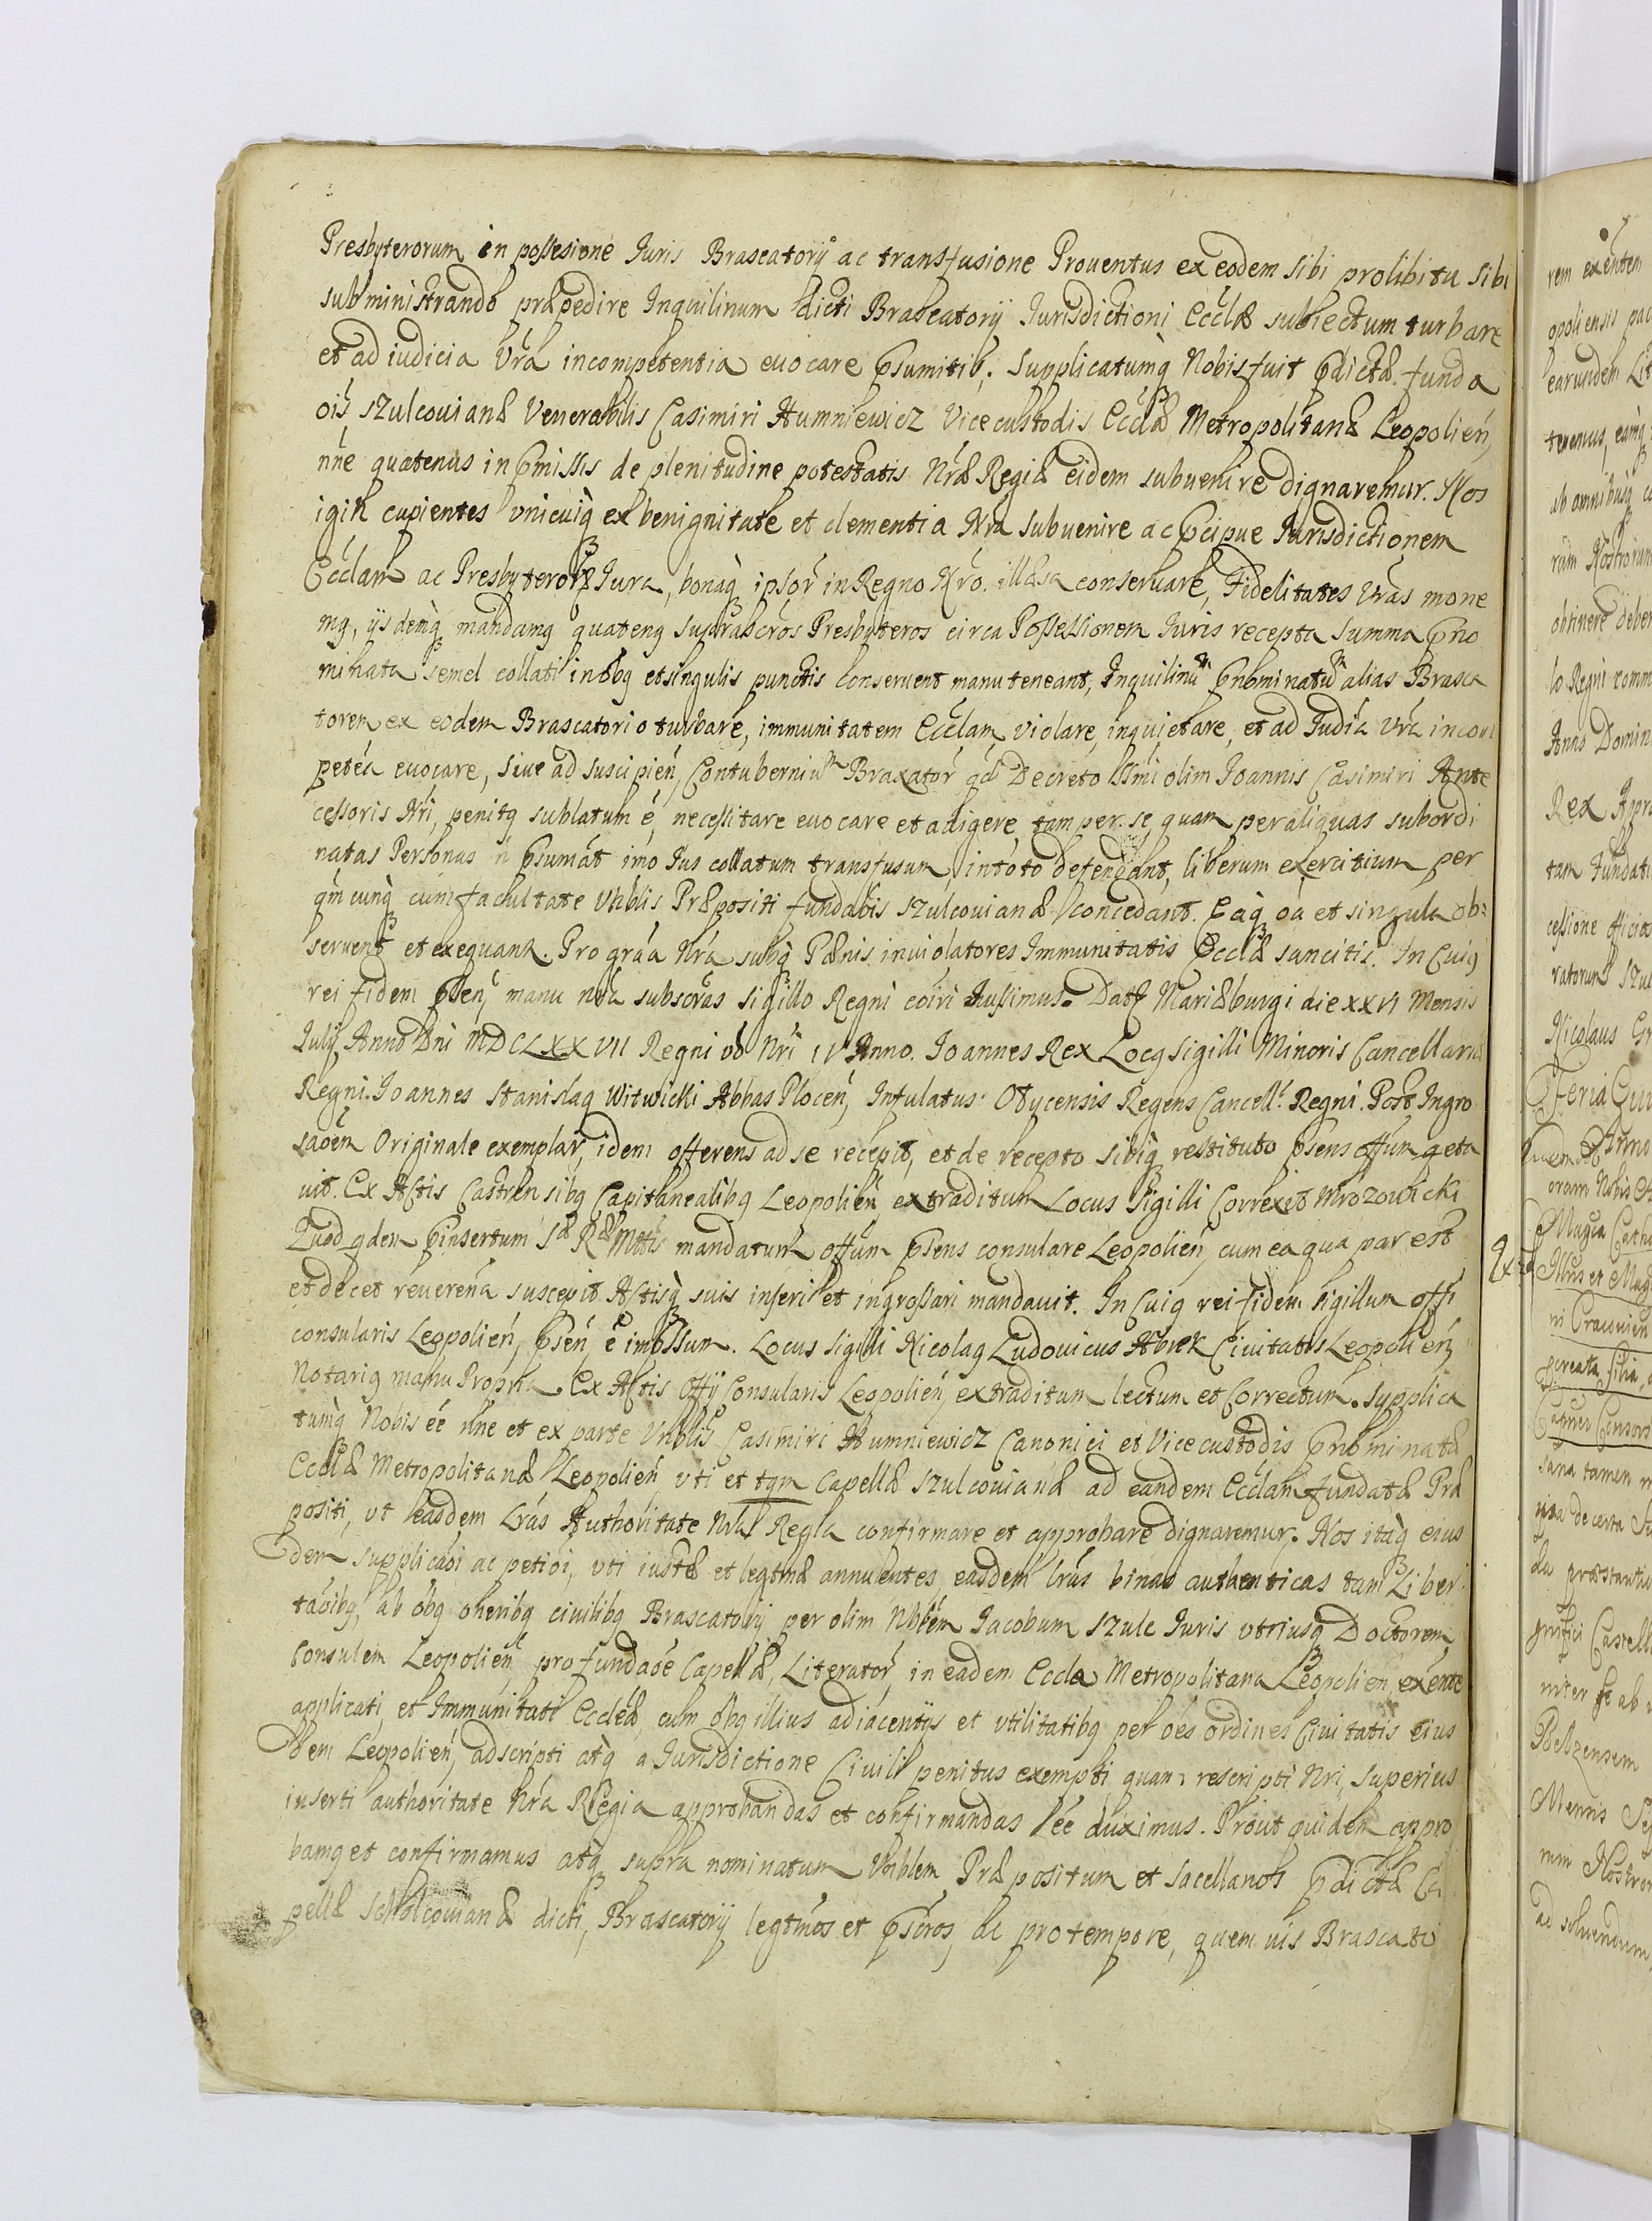 Presbyterorum in possesione Iuris Braseatorÿ ac transfusione Prouentus ex eodem sibi prolibitu sibi
subministrando præpedire Inquilinum dicti Braseatorÿ Iurisdictioni Ecclæ subiectum turbare
et ad iudicia Vrã incompetentia euocare psumitis. Supplicatumq Nobis fuit pdictæ funda
ois Szulcouianæ Venerabilis Casimiri Humniewicz Vicecustodis Ecclæ Metropolitanæ Leopolień,
nñe quatenus in pmissis de plenitudine potestatis Nræ Regiæ eidem subuenire dignaremur. Nos
igit cupientes vnicuiq ex benignitate et clementia Nra subuenire ac pcipue Iurisdictionem
Ecclam ac Presbyteror Iura, bonaq ipsor in Regno Nro illæsa conseruare, Fidelitates Vras mone
mg, ijsdemq mandamg quateng suprascros Presbyteros circa Possessionem Iuris recepta summa pno
minata semel collati in obg et singulis punctis conseruent manuteneant, Inquilinum pnominatum alias Brasea
torem ex eodem Brascatorio turbare, immunitatem Ecclam violare, inquietare, et ad Iudia Vra incom
petea euocare, siue ad suscipień, Contubernium Braxator qd Decreto Ssmi olim Ioannis Casimiri Ante
cessoris Nri, penitg sublatum é, necessitare euocare et adigere tam per se, quam per aliquas subordi
natas Personas ñ psumat imo Ius collatum transfusum, in toto defendant, liberum exercitium per
qmcunq cum facultate Vnblis Præpositi fundaois Szulcouianæ concedant. Eaq oa et singula ob=
seruent et exequant. Pro graa Nra subq Pænis in violatores Immunitatis Ecclæ sancitis. In Cuig
rei fidem psen, manu nra subscras sigillo Regni coiri iussimus. Dat Mariæburgi die XXVI Mensis
Iulij Anno Dni MDCLXXVII Regni vo Nri IV Anno. Ioannes Rex Locg Sigilli Minoris Cancellariæ
Regni. Ioannes Stanislag Witwicki Abbas Plocen, Infulatus Regens Cancell. Regni. Post Ingro
saoem Originale exemplar, idem offerens ad se recepit, et de recepto sibiq restituto psens offum qeta
uit. Ex Actis Castrensibg Capitanealibg Leopolień, extraditum Locus Sigilli Correxit Mrozowicki
Quod qdem pinsertum Sæ Ræ Mttis mandatum offum psens consulare Leopolień, cum ea qua par est
et decet reuerena suscepit Actisq suis inseri et ingrossari mandauit. In Cuig rei fidem sigillum offi
consularis Leopolień, psen é impssum. Locus Sigilli Nicolag Ludouicus Abrek Ciuitatis Leopolień
Notarig manu Propria. Ex Actis Offÿ Consularis Leopolień, extraditum lectum et Correctum. Supplica
tumq Nobis eé nñe et ex parte Vnblis Casimiri Humniewicz Canonici et Vicecustodis pnominatæ
Ecclæ Metropolitanæ Leopolień vti et tqm Capellæ Szulcouianæ ad eandem Ecclam fundatæ Præ
positi, vt easdem Lras Authoritate Nra Regia confirmare et approbare dignaremur. Nos itaq eius
dem supplicaoi ac petioi, vti iustæ et legtmæ annuentes, easdem lras binas authenticas tam Liber
taoibg, ab obg oneribg ciuilibg Brascatorij per olim Nbtem Iacobum Szulc Iuris vtriusq Doctorem
Consulem Leopolień pro fundaoe Capellæ, Literator, in eadem Eccla Metropolitana Leopolień, exente
applicati, et Immunitati Eccleæ, cum obg illius adiacentijs et vtilitatibg per oes ordines Ciuitatis eius
dem Leopolień, adscripti atq a Iurisdictione Ciuili penitus exempti quam rescripti Nri, superius
inserti authoritate Nra Regia approbandas et confirmandas eé duximus. Prout quidem appro
bamg et confirmamus atq supra nominatum Vnblem Præpositum et Sacellanos pdictæ Ca
pellæ Scholcouianæ dicti, Brascatorij legtmos et pscros, ac pro tempore, quem uis Brascato